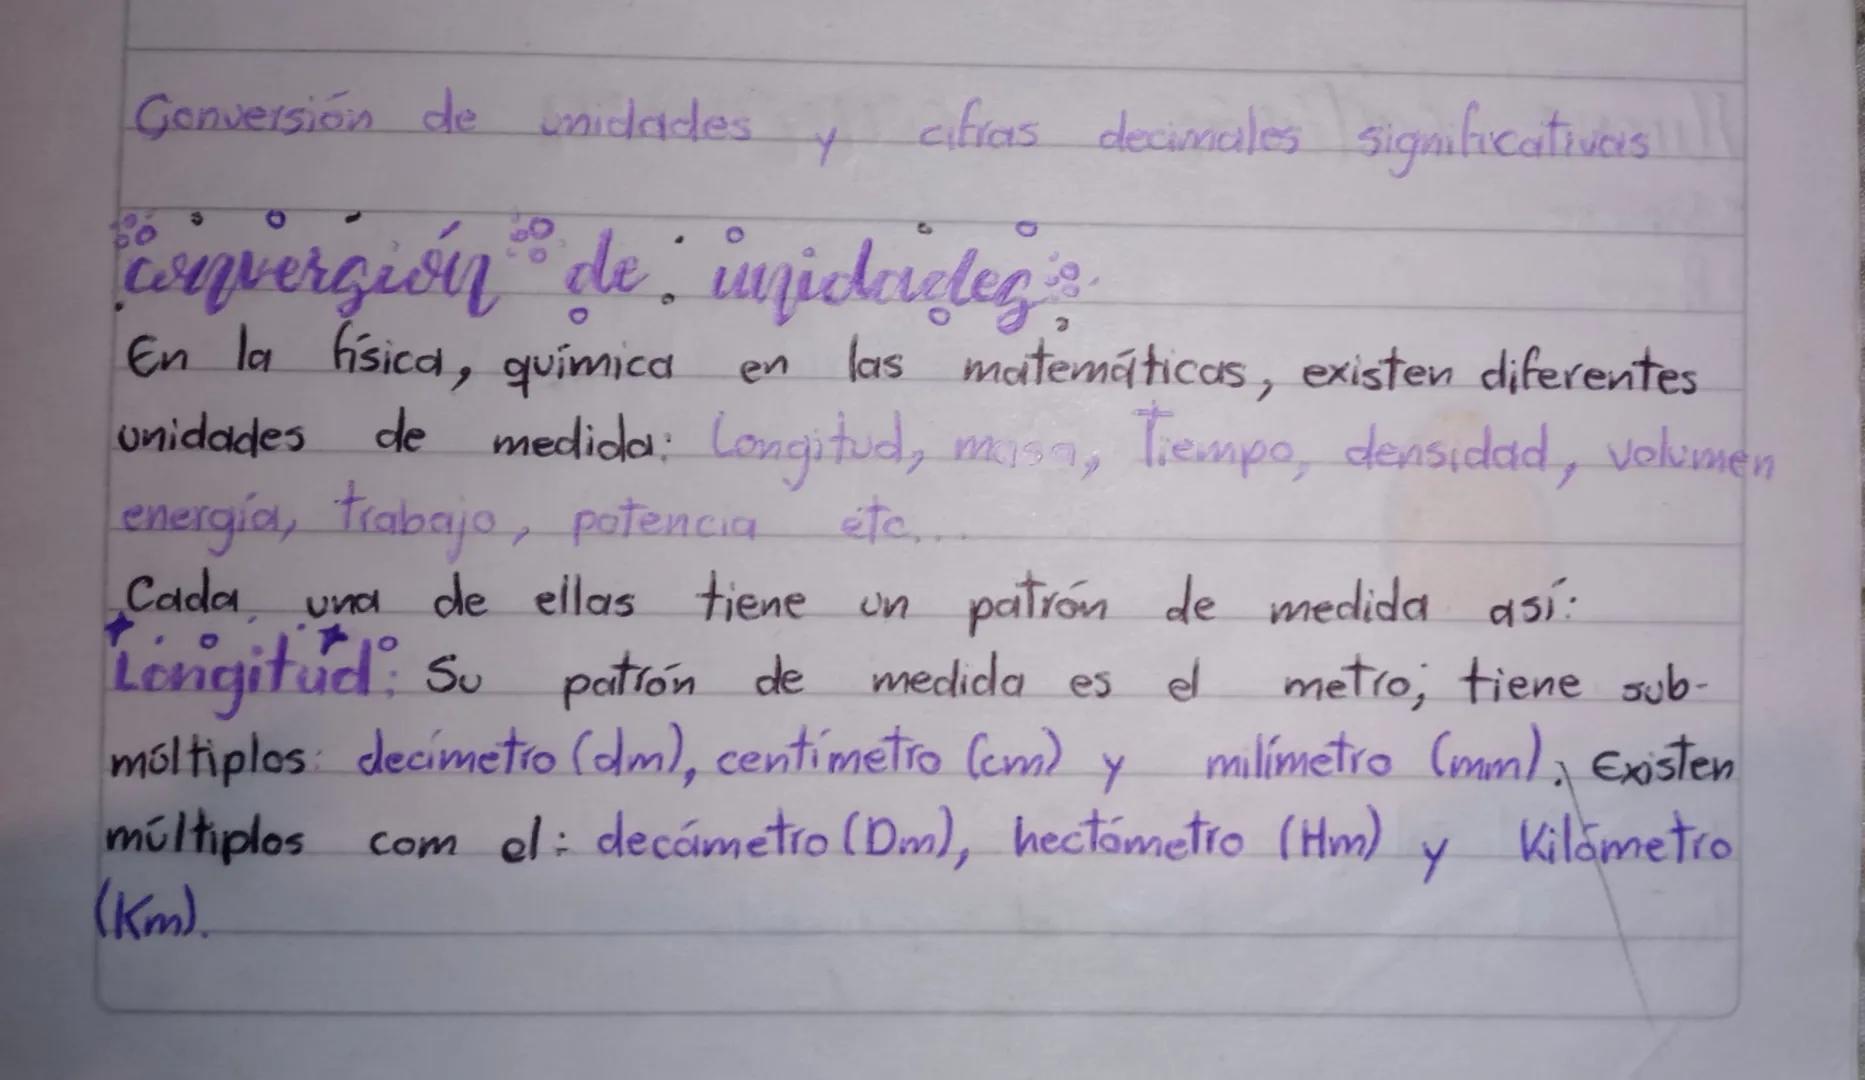 Conversión de unidades y cifras decimales significativas
conversión de unidades
En la física, química en las matemáticas, existen diferentes
unidades de medida: Longitud, masa, Tiempo, densidad, volumen
energía, trabajo, potencia etc...
Cada una de ellas tiene un patrón de medida así:
Longitud: Su patrón de medida es el metro; tiene sub-
múltiplos: decímetro (dm), centímetro (cm) y milímetro (mm). Existen
múltiplos com el: decámetro (Dm), hectómetro (Hm) y Kilómetro
(Km).